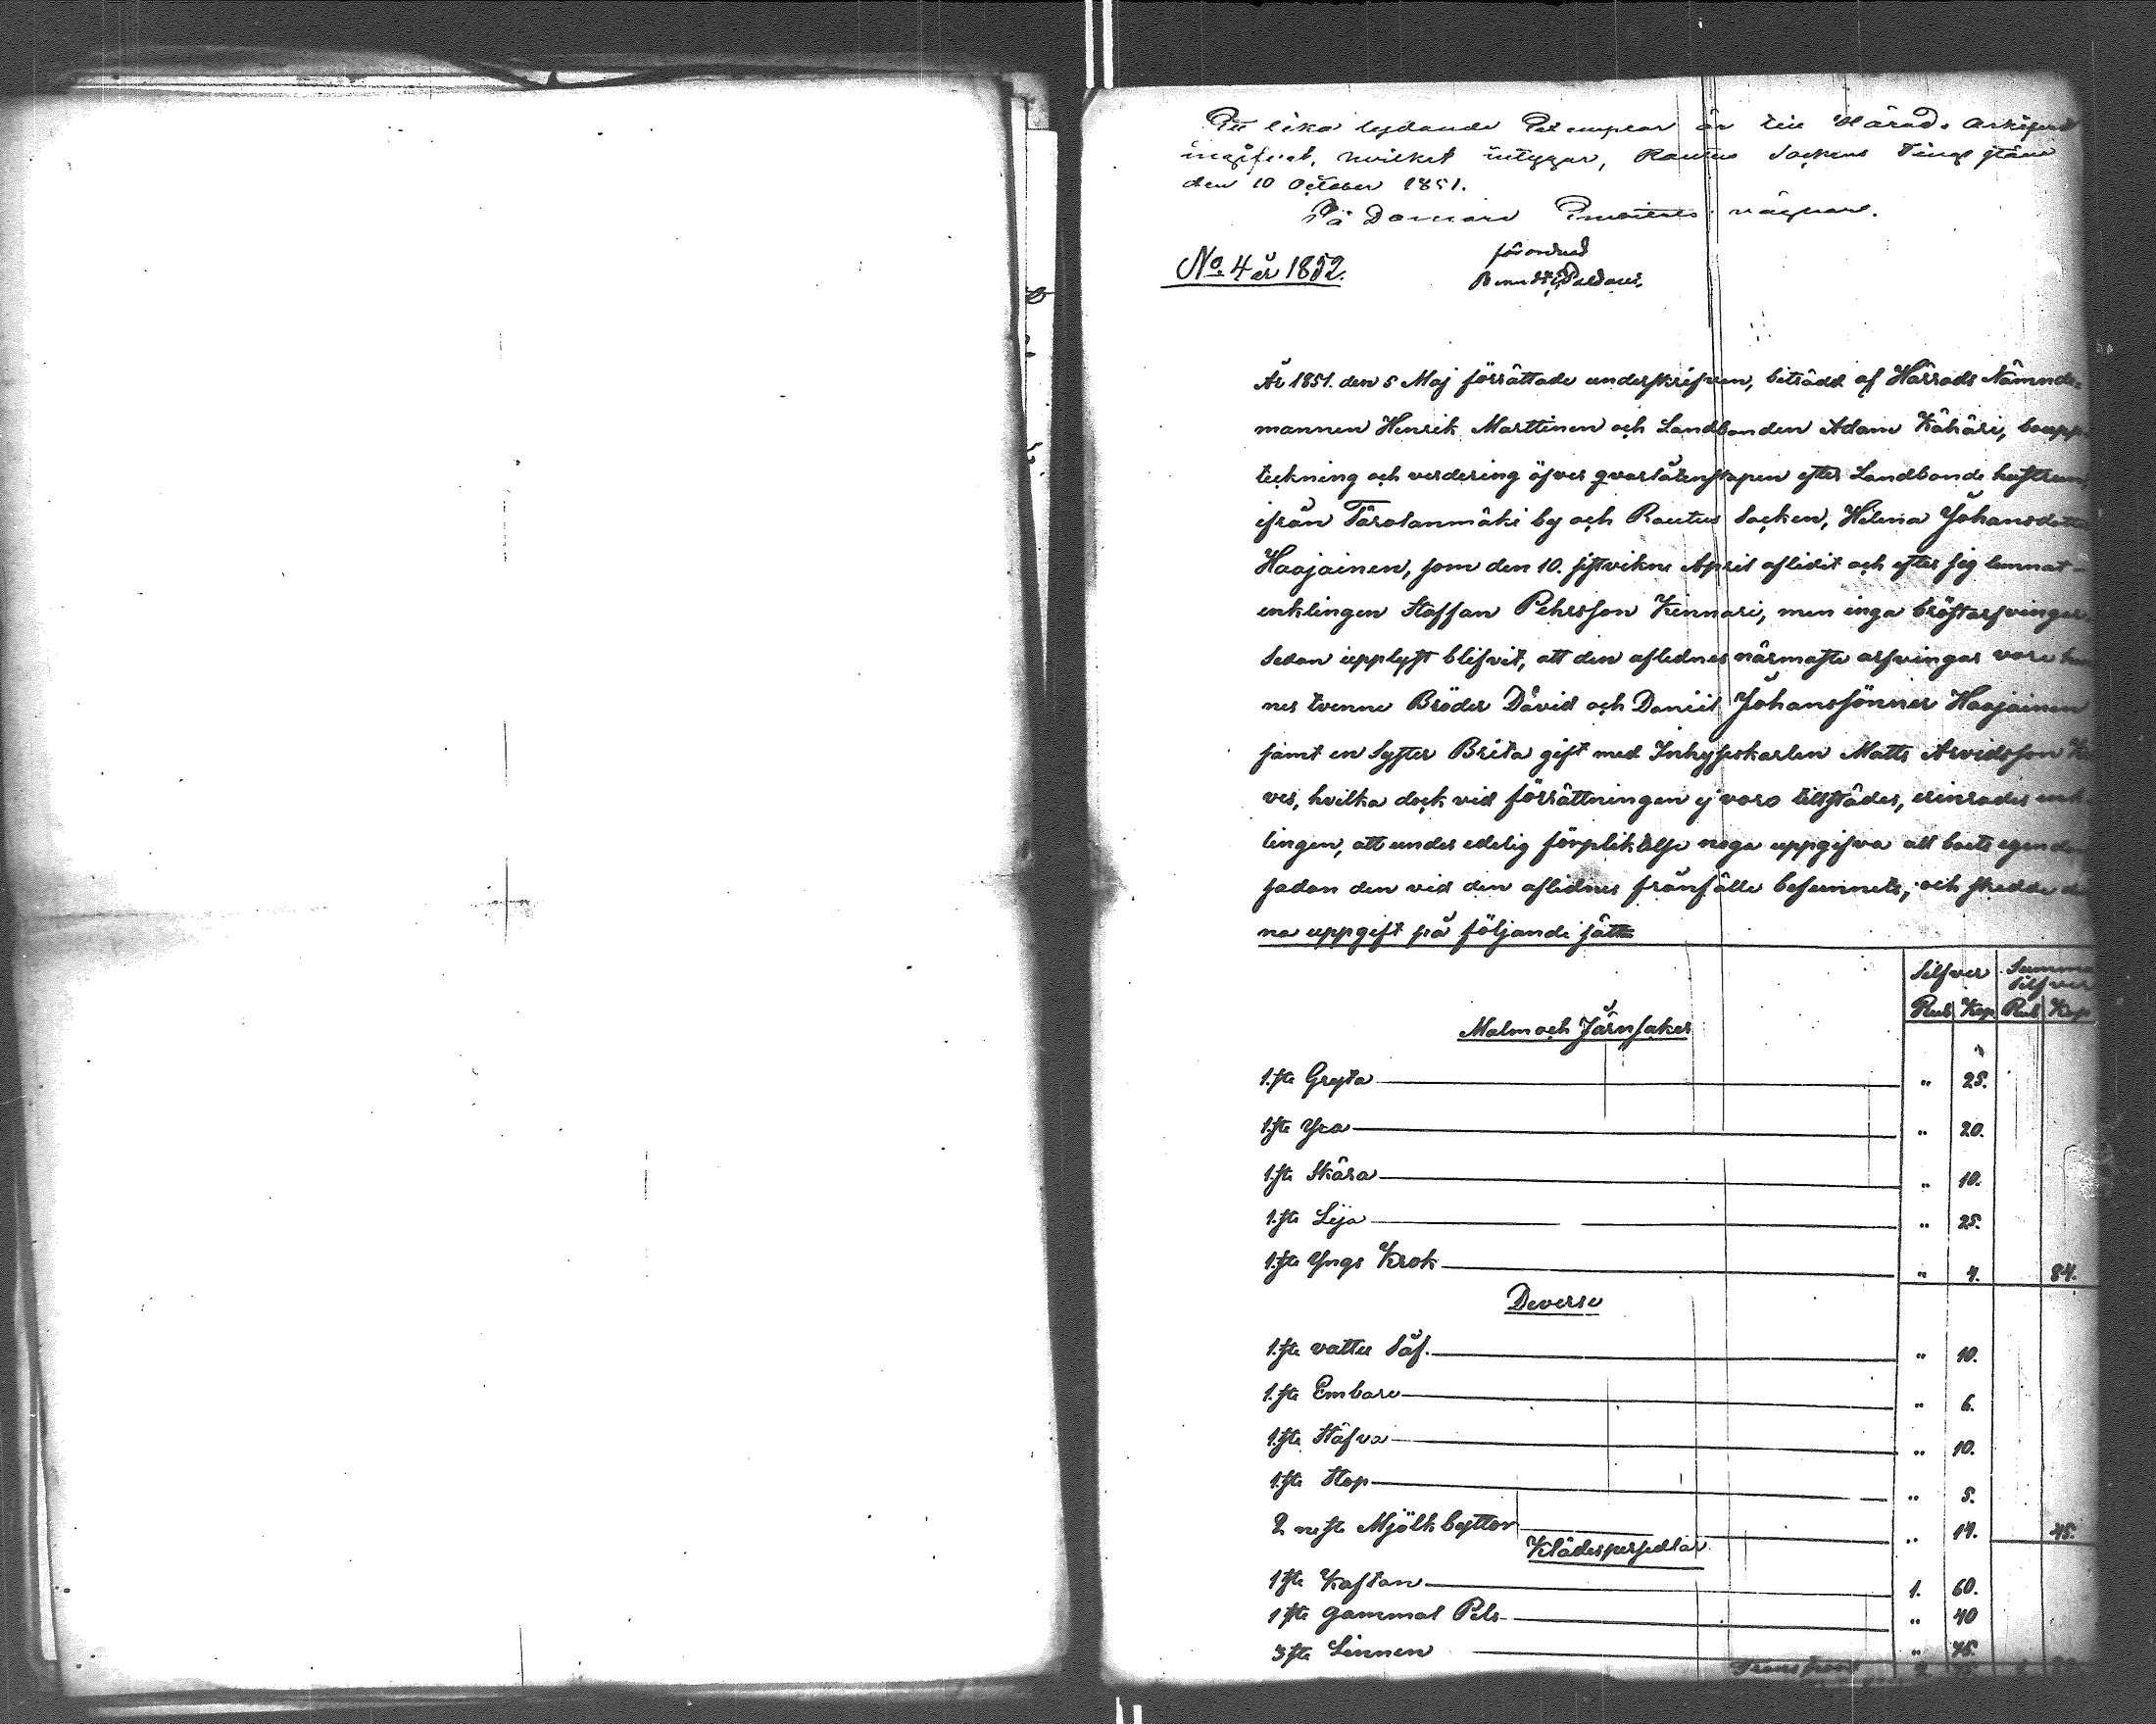 Ett lika lydande Exemplar är till Härads Arkifvet
ingifvet, hvilket intygar, Rautus Sockens Tingstäm
den 10 October 1851.
På Domare Embetets vägnar.
förordnad
No. 4 år 1852.
År 1851. den 5 Maj förrättade underskrifven, biträdd af Härrads Nämnde-
mannen Henrik Marttinen och Landbonden Adam Kähäri, boupp-
teckning och verdering öfver qvarlåtenskapen efter Landbonde hustrun
ifrån Tårolanmäki by och Rautus Socken, Helena Johansdotter
Haajainen, som den 10. sistvikne April aflidit och efter sig lemnat
enklingen Staffan Pehrsson Kinnari, men inga bröstarfvingar.
Sedan upplyst blifvit, att den aflednes närmaste arfvingar vore hen
nes tvenne Bröder David och Daniel Johanssönner Haajainen
samt en Syster Brita gift med Inhyseskarlen Matts Arvidsson
ves, hvilka dock vid förrättningen ej voro tillstädes, erinrades enk-
lingen, att under edelig förpliktelse noga uppgifva all boets egendom
sadan den vid den aflidnes frånfälle befunnets, och skedde den
na uppgift på följande sätt
Silfver Summa Silfver
Rub Kop. Rub Kop
Malm och Järnsaker
1. sts Gryta " 25.
1. sts Yxa " 20.
1. sts Skära " 10.
1. sts Lija " 25.
1. sts Ungs Krok " 4. 84.
Deverse
1. sts vattu Såf. " 10.
1. sts Embare " 6.
1. sts Stäfva " 10.
1. sts Stop " 5.
2 ne sts Mjölk byttor " 14. 45.
Klädespersedlar
1 sts Kaftan 1. 60.
1 sts gammal Pels " 40
3 sts Linnen " 75.
Transport 2 75